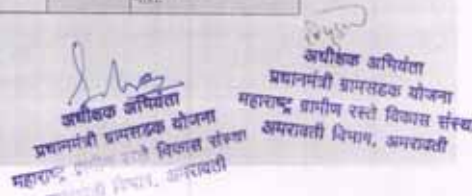 अधीक्षक अभियंता
प्रधानमंत्री ग्रामसडक योजना
महाराष्ट्र ग्रामीण रस्ते विकास संस्था
अमरावती विभाग, अमरावती
अधीक्षक अभियंता
प्रधानमंत्री ग्रामसडक योजना
महाराष्ट्र ग्रामीण रस्ते विकास संस्था
अमरावती विभाग, अमरावती